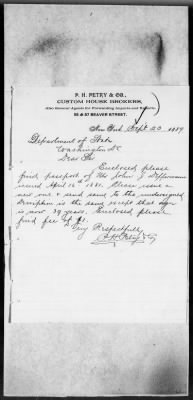 P. H. PETRY & CO.,
CUSTOM HOUSE BROKERS,
Also General Agents for Forwarding Imports and Exports,
55 & 57 BEAVER STREET.
New York, Sept 20 1889
Department of State
Washington DC
Dear Sir
Enclosed please
find passport of Mr John J
issued April 1881. Please issue a
new one & send same to the undersigned.
Description is the same except that age
is now 39 years. Enclosed please
find fee of $1.
Very Respectfully
P H Petry & Co